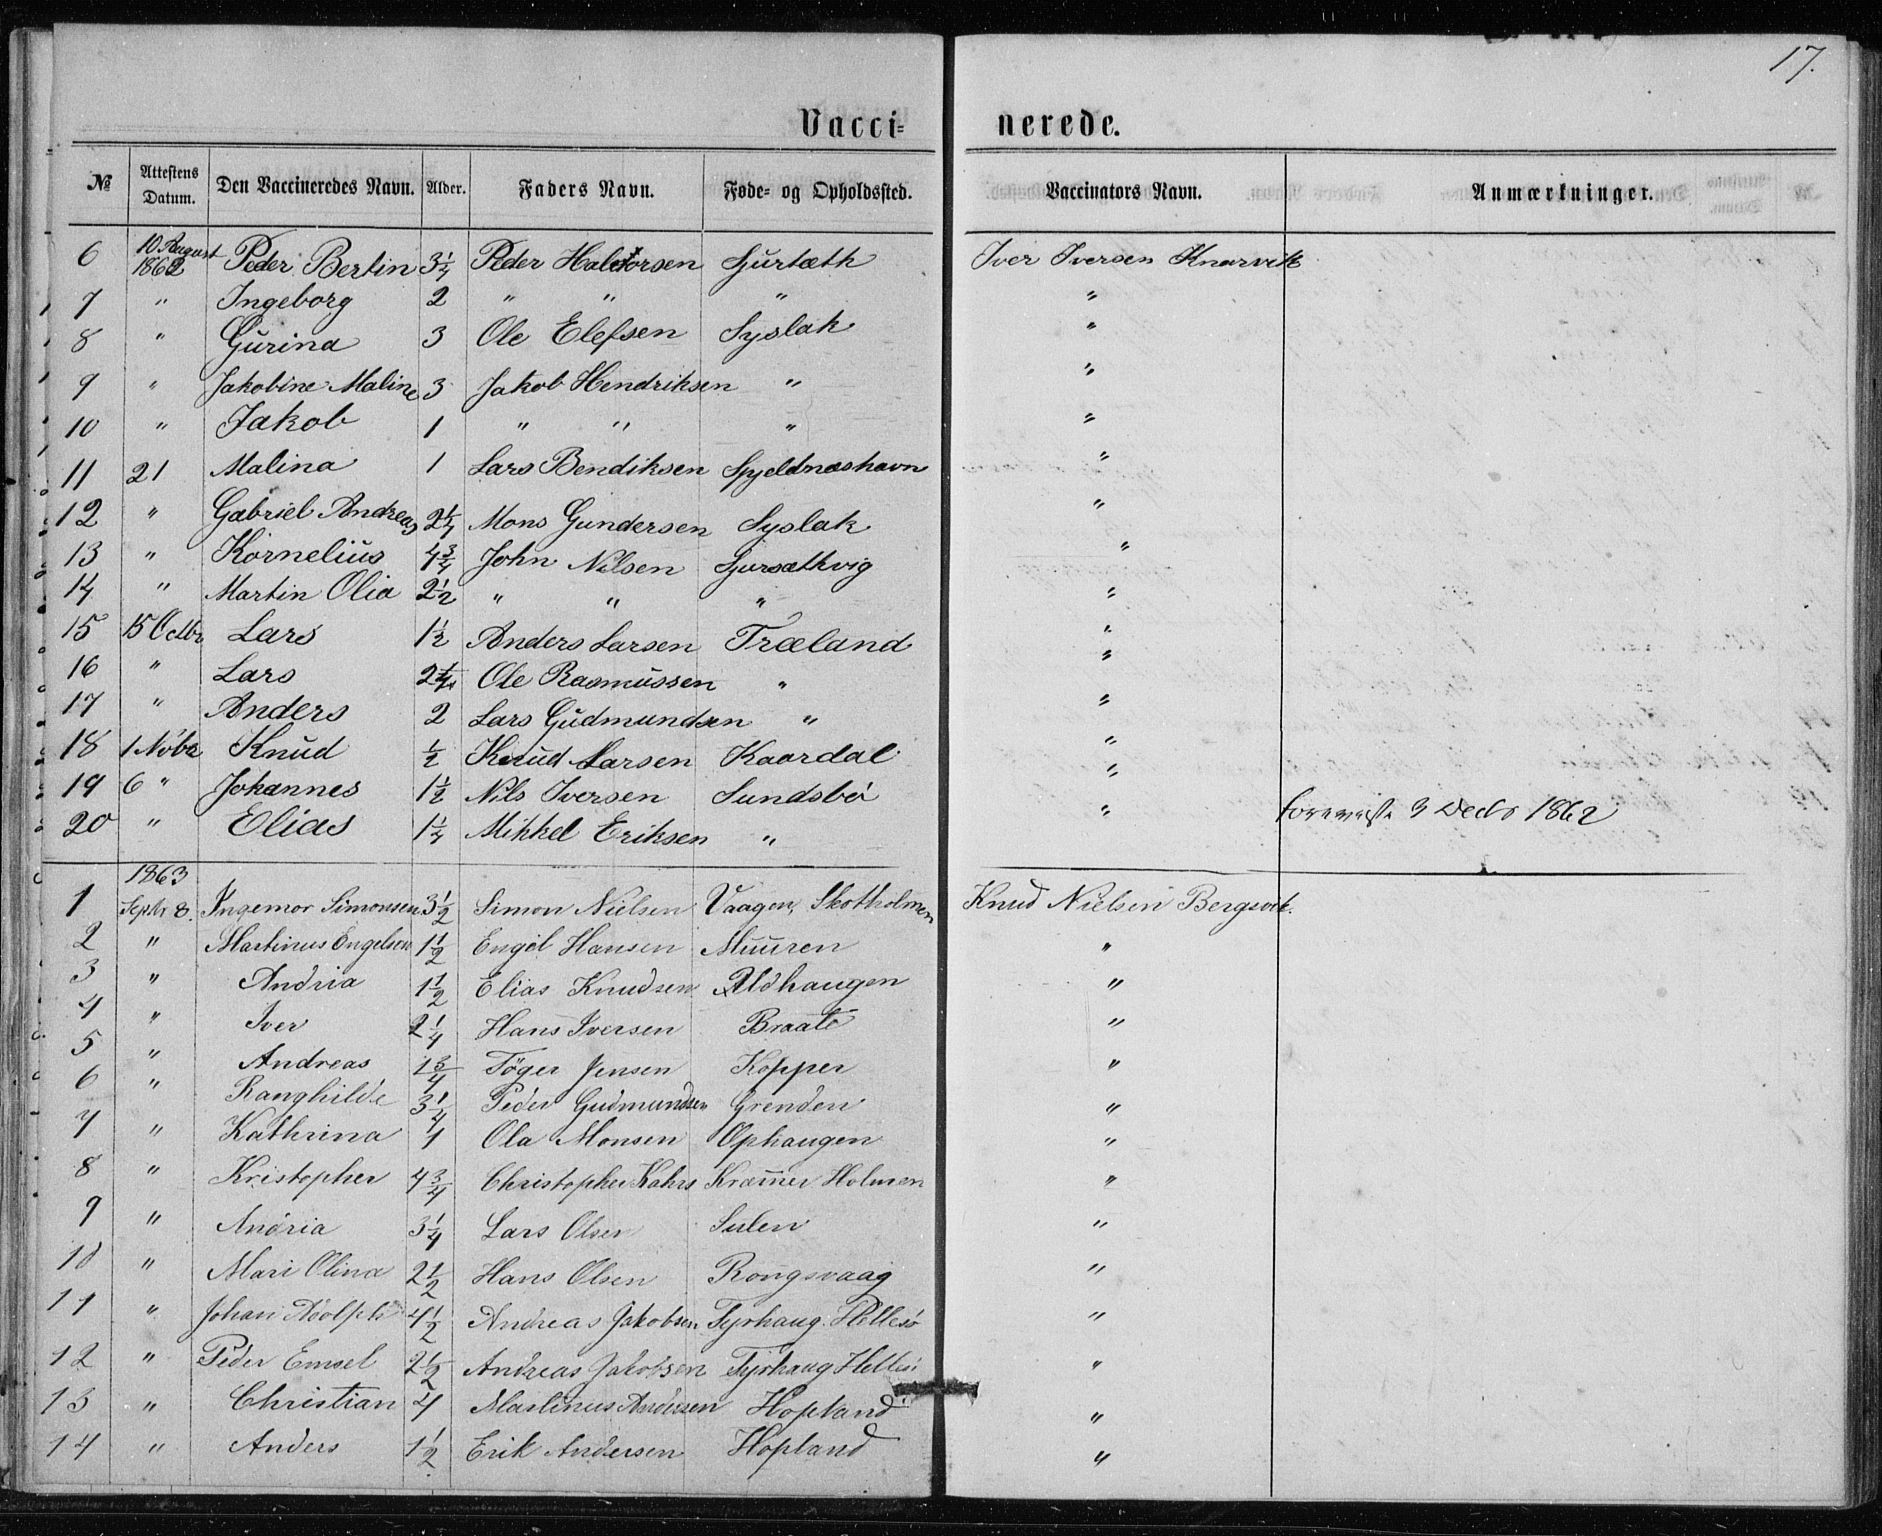 17.
Vacci= nerede.
№ Attestens Datum. Den Vaccineredes Navn. Alder. Faders Navn. Føde- og Opholdssted. Vaccinators Navn. Anmærkninger.
6 10 August 1862 Peder Bertin 3¼ Peder Halvorsen Sjurtæth Iver Iversen Knarvik
7 " Ingeborg 2 " " " "
8 " Gurina 3 Ole Elefsen Syslak "
9 " Jakobine Maline 3 Jakob Hendriksen " "
10 " Jakob 1 " " " "
11 21 Malina 1 Lars Bendiksen Spjeldnæshavn "
12 " Gabriel Andreas 2¼ Mons Gundersen Syslak "
13 " Kornelius 4¾ John Nilsen Sjursæthvig "
14 " Martin Olia 2½ " " " "
15 15 Octbr Lars 1½ Anders Larsen Træland "
16 " Lars 2¼ Ole Rasmussen " "
17 " Anders 2 Lars Gudmundsen " "
18 1 Nobr Knud ½ Knud Larsen Kaardal "
19 6 " Johannes 1½ Nils Iversen Sundsbø "
20 " Elias 1¼ Mikkel Eriksen " " 3 Decbr 1862
1863
1 Septbr 8. Ingemor Simonsen 3½ Simon Nielsen Vaagen, Skotholmen Knud Nielsen Bergsvik.
2 " Martinus Engelsen 1½ Engel Hansen Muuren "
3 " Andria 1½ Elias Knudsen Uldhaugen "
4 " Iver 2¼ Hans Iversen Braate "
5 " Andreas 1¾ Tøger Jensen Kopper "
6 " Ranghilde 3¼ Peder Gudmundsen Grenden "
7 " Kathrina 1 Ola Monsen Ophaugen "
8 " Kristopher 4¾ Christopher Kahrs Kræmmer Holmen "
9 " Andria 3¼ Lars Olsen Sulen "
10 " Mari Olina 2½ Hans Olsen Rongsvaag "
11 " Johan Adolph 4½ Andreas Jakobsen Tyrhaug. Hellesø "
12 " Peder Emsel 2½ Andreas Jakobsen Tyrhaug Hellesø "
13 " Christian 4 Martinus Andersen Hopland "
14 " Anders 1½ Erik Andersen Hopland "